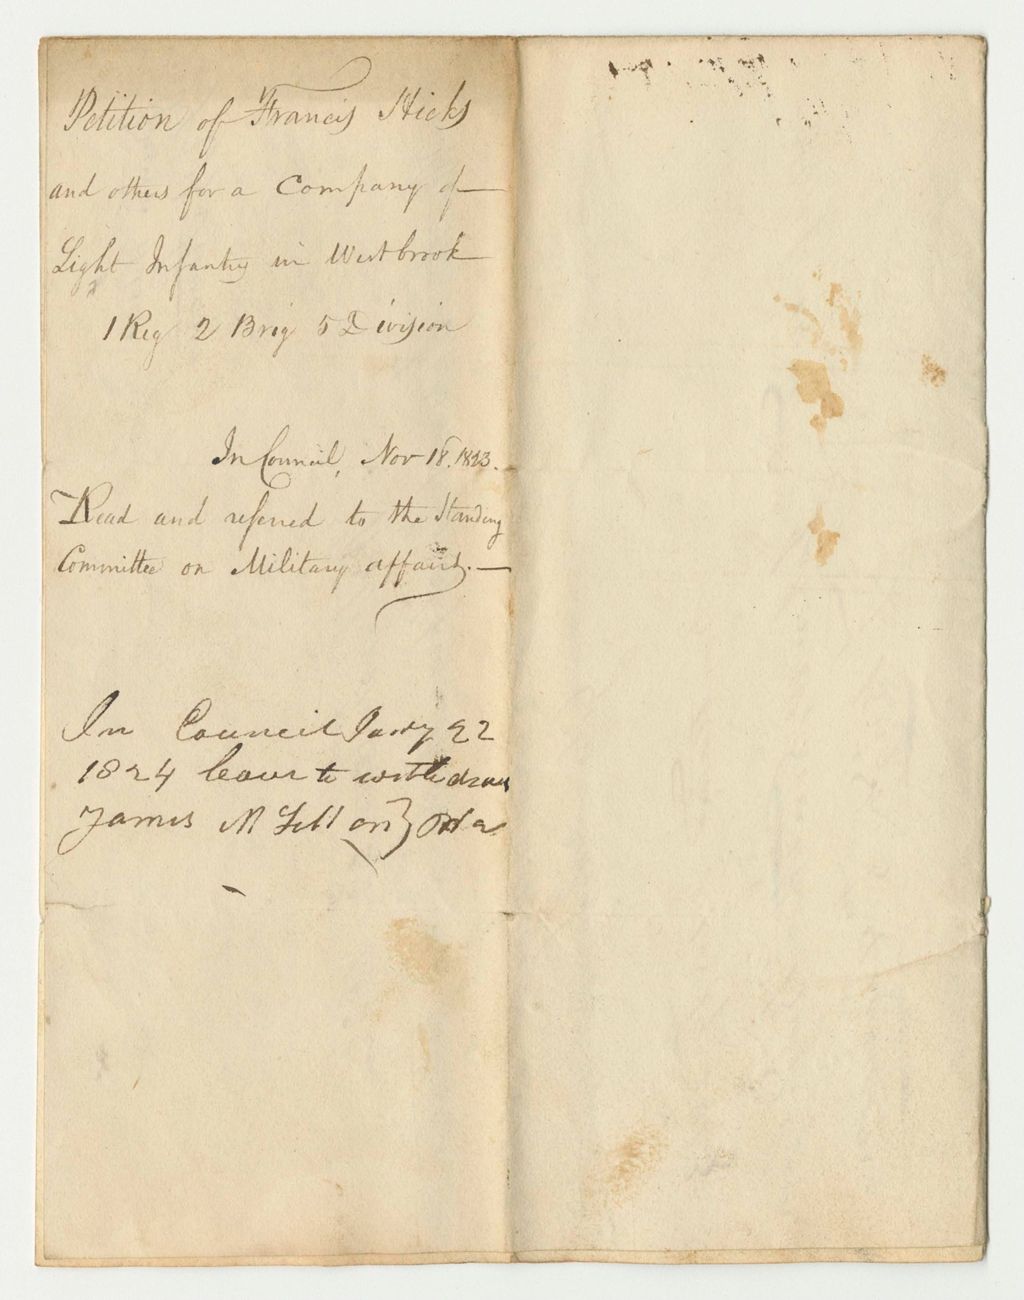 Petition of Francis Hicks
and others for a Company of
Light Infantry in Westbrook
1 Reg 2 Brig 5 Division
In Council, Nov 18. 1823.
Read and referred to the Standing
Committee on Military affairs.—
In Council Jany 22
1824 leave to withdraw
James M